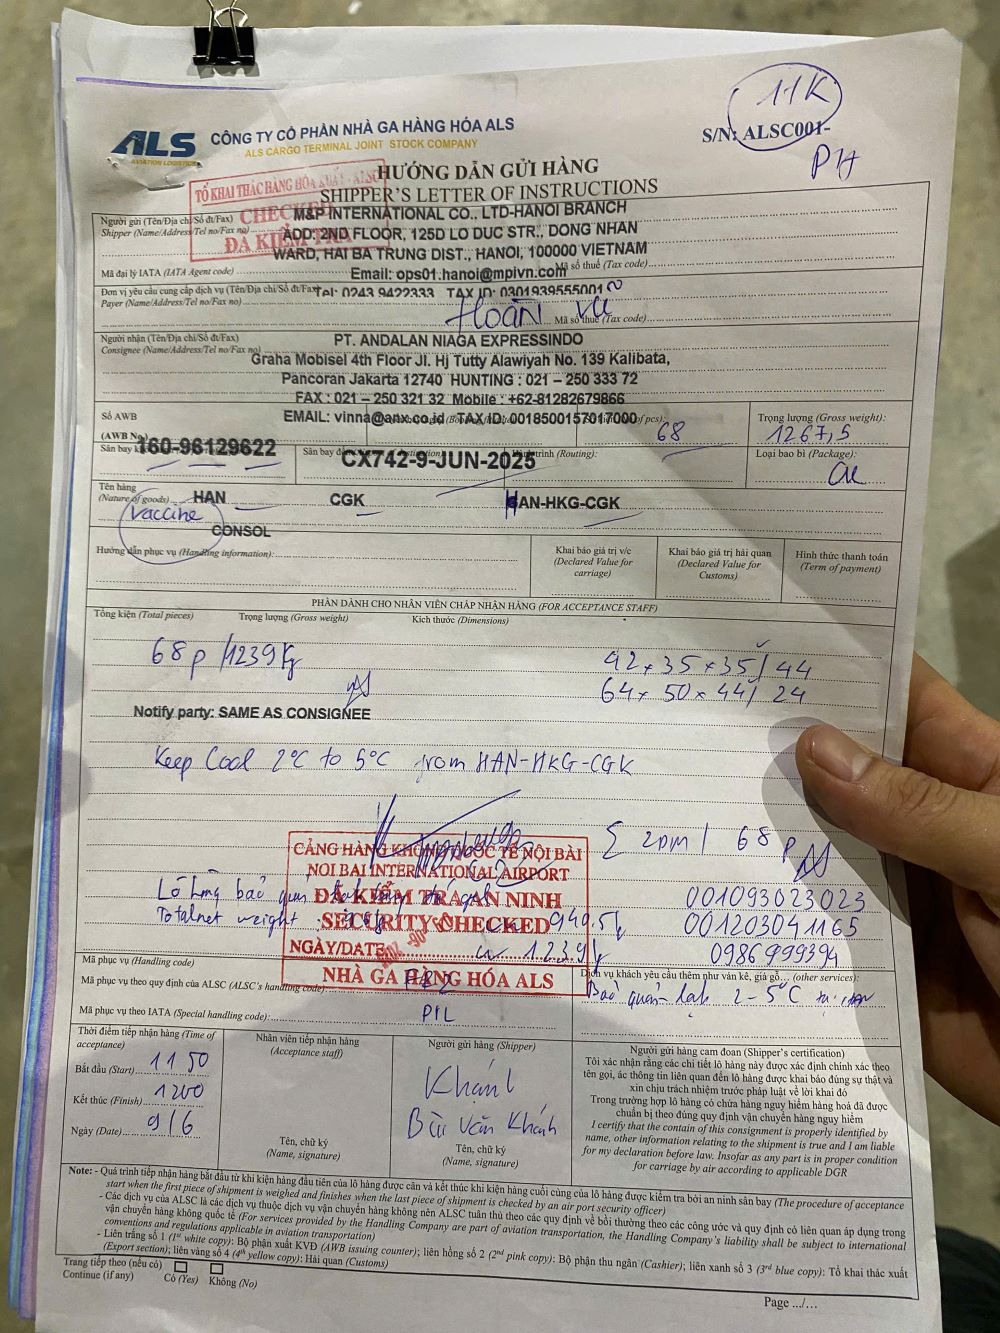 11K
ALS
AVIATION LOGISTICS
CÔNG TY CỔ PHẦN NHÀ GA HÀNG HÓA ALS
ALS CARGO TERMINAL JOINT STOCK COMPANY
S/N: ALSC001-
P1A
HƯỚNG DẪN GỬI HÀNG
SHIPPER'S LETTER OF INSTRUCTIONS
TỔ KHAI THÁC HÀNG HÓA XUẤT - ALSC
CHECKED
ĐÃ KIỂM TRA
Người gửi (Tên/Địa chỉ/Số đt/Fax)
Shipper (Name/Address/Tel no/Fax no)
M&P INTERNATIONAL CO., LTD-HANOI BRANCH
ADD: 2ND FLOOR, 125D LO DUC STR., DONG NHAN
WARD, HAI BA TRUNG DIST., HANOI, 100000 VIETNAM
Mã đại lý IATA (IATA Agent code)
Email: ops01.hanoi@mpivn.com
Mã số thuế (Tax code)
Đơn vị yêu cầu cung cấp dịch vụ (Tên/Địa chỉ/Số đt/Fax)
Tel: 0243 9422333 TAX ID: 0301939555001
Payer (Name/Address/Tel no/Fax no)
Hoàn Vũ
Mã số thuế (Tax code)
Người nhận (Tên/Địa chỉ/Số đt/Fax)
Consignee (Name/Address/Tel no/Fax no)
PT. ANDALAN NIAGA EXPRESSINDO
Graha Mobisel 4th Floor Jl. Hj Tutty Alawiyah No. 139 Kalibata,
Pancoran Jakarta 12740 HUNTING : 021 – 250 333 72
FAX : 021 – 250 321 32 Mobile : +62-81282679866
EMAIL: vinna@anx.co.id TAX ID: 0018500157017000
Số AWB
(AWB No)
160-96129622
of pcs):
68
Trọng lượng (Gross weight):
1267,5
Sân bay
Sân bay
CX742-9-JUN-2025
trình (Routing):
Loại bao bì (Package):
Tên hàng
(Nature of goods)
HAN
CGK
HAN-HKG-CGK
Vaccine
CONSOL
Hướng dẫn phục vụ (Handling information):
Khai báo giá trị v/c
(Declared Value for
carriage)
Khai báo giá trị hải quan
(Declared Value for
Customs)
Hình thức thanh toán
(Term of payment)
PHẦN DÀNH CHO NHÂN VIÊN CHẤP NHẬN HÀNG (FOR ACCEPTANCE STAFF)
Tổng kiện (Total pieces)
Trọng lượng (Gross weight)
Kích thước (Dimensions)
68p /1239 kg
42 x 35 x 35 / 44
64 x 50 x 44 / 24
Notify party: SAME AS CONSIGNEE
Keep Cool 2°C to 5°C from HAN-HKG-CGK
Σ 2DM / 68p
CẢNG HÀNG KHÔNG QUỐC TẾ NỘI BÀI
NOI BAI INTERNATIONAL AIRPORT
ĐÃ KIỂM TRA AN NINH
SECURITY CHECKED
NGÀY/DATE
NHÀ GA HÀNG HÓA ALS
Lô hàng bảo quản
001093023023
Total net weight :
949.5
001203041165
1239
0986999394
Mã phục vụ (Handling code)
Dịch vụ khách yêu cầu thêm như vân kê, giá gỗ... (other services):
Mã phục vụ theo quy định của ALSC (ALSC's handling code)
Bảo quản lạnh 2-5°C
Mã phục vụ theo IATA (Special handling code):
PIL
Thời điểm tiếp nhận hàng (Time of
acceptance)
Bắt đầu (Start)
1150
Kết thúc (Finish)
1200
Ngày (Date)
9/6
Nhân viên tiếp nhận hàng
(Acceptance staff)
Tên, chữ ký
(Name, signature)
Người gửi hàng (Shipper)
Khánh
Bùi Văn Khánh
Tên, chữ ký
(Name, signature)
Người gửi hàng cam đoan (Shipper's certification)
Tôi xác nhận rằng các chi tiết lô hàng này được xác định chính xác theo
tên gọi, ác thông tin liên quan đến lô hàng được khai báo đúng sự thật và
xin chịu trách nhiệm trước pháp luật về lời khai đó
Trong trường hợp lô hàng có chứa hàng nguy hiểm hàng hoá đã được
chuẩn bị theo đúng quy định vận chuyển hàng nguy hiểm
I certify that the contain of this consignment is properly identified by
name, other information relating to the shipment is true and I am liable
for my declaration before law. Insofar as any part is in proper condition
for carriage by air according to applicable DGR
Note: - Quá trình tiếp nhận hàng bắt đầu từ khi kiện hàng đầu tiên của lô hàng được cân và kết thúc khi kiện hàng cuối cùng của lô hàng được kiểm tra bởi an ninh sân bay (The procedure of acceptance
start when the first piece of shipment is weighed and finishes when the last piece of shipment is checked by an air port security officer)
- Các dịch vụ của ALSC là các dịch vụ thuộc dịch vụ vận chuyển hàng không nên ALSC tuân thủ theo các quy định về bồi thường theo các công ước và quy định có liên quan áp dụng trong
vận chuyển hàng không quốc tế (For services provided by the Handling Company are part of aviation transportation, the Handling Company's liability shall be subject to international
conventions and regulations applicable in aviation transportation)
- Liên trắng số 1 (1st white copy): Bộ phận xuất KVĐ (AWB issuing counter); liên hồng số 2 (2nd pink copy): Bộ phận thu ngân (Cashier); liên xanh số 3 (3rd blue copy): Tổ khai thác xuất
(Export section); liên vàng số 4 (4th yellow copy): Hải quan (Customs)
Trang tiếp theo (nếu có)
Continue (if any)
Có (Yes)
Không (No)
Page .../...